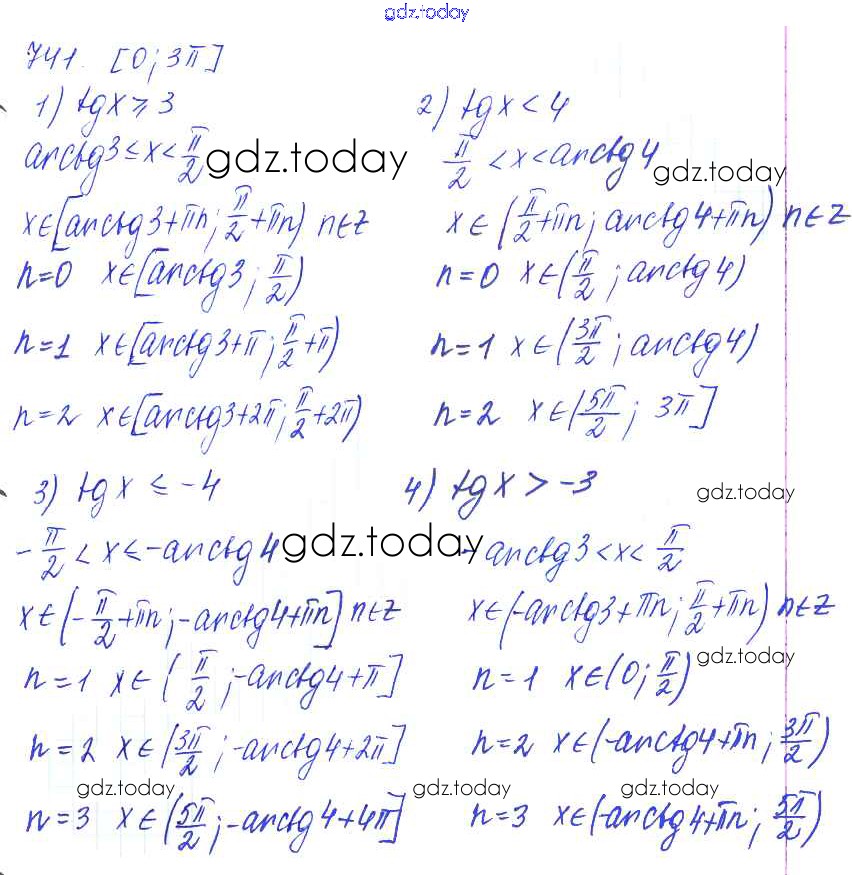 gdz.today
741. [0; 3π]
1) tgx ≥ 3
arctg3 ≤ x < π/2
gdz.today
x∈[arctg3+πn; π/2+πn) n∈Z
n=0 x∈[arctg3; π/2)
n=1 x∈[arctg3+π; π/2+π)
n=2 x∈[arctg3+2π; π/2+2π)
2) tgx < 4
π/2 < x < arctg4
gdz.today
x∈(π/2+πn; arctg4+πn) n∈Z
n=0 x∈(π/2; arctg4)
n=1 x∈(3π/2; arctg4)
n=2 x∈(5π/2; 3π]
3) tgx ≤ -4
-π/2 < x ≤ -arctg4
gdz.today
x∈(-π/2+πn; -arctg4+πn] n∈Z
n=1 x∈(π/2; -arctg4+π]
n=2 x∈(3π/2; -arctg4+2π]
gdz.today
n=3 x∈(5π/2; -arctg4+4π]
4) tgx > -3
gdz.today
-arctg3 < x < π/2
x∈(-arctg3+πn; π/2+πn) n∈Z
gdz.today
n=1 x∈(0; π/2)
n=2 x∈(-arctg4+πn; 3π/2)
gdz.today gdz.today
n=3 x∈(-arctg4+πn; 5π/2)